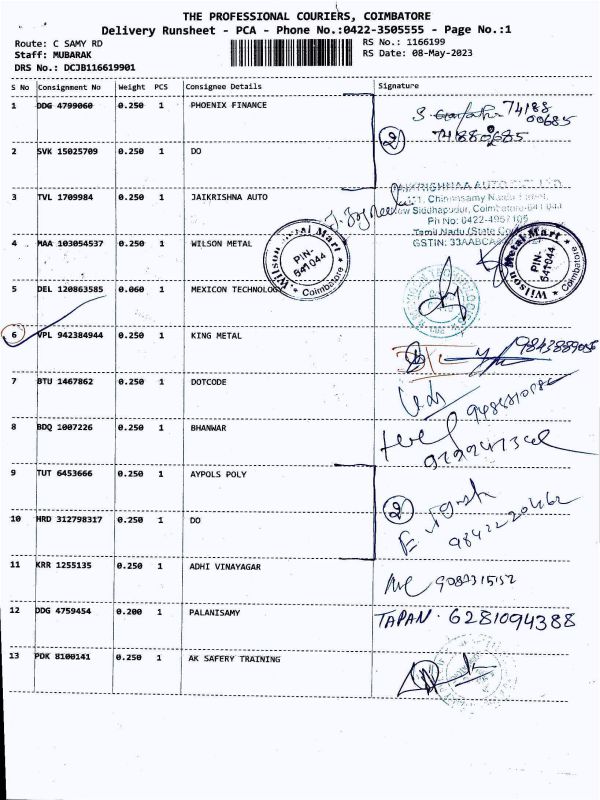 THE PROFESSIONAL COURIERS, COIMBATORE
Delivery Runsheet - PCA - Phone No.:0422-3505555 - Page No.:1
Route: C SAMY RD
RS No.: 1166199
Staff: MUBARAK
RS Date: 08-May-2023
DRS No.: DCJB116619901
S No Consignment No Weight PCS Consignee Details Signature
1 DDG 4799060 0.250 1 PHOENIX FINANCE
74188
00685
2
2 SVK 15025709 0.250 1 DO
3 TVL 1709984 0.250 1 JAIKRISHNA AUTO
JAIKRISHNAA AUTO
Siddhapudur, Coimbatore-641 044
Ph No: 0422-4957105
Tamil Nadu (State
GSTIN: 33AABCA
4 MAA 103054537 0.250 1 WILSON METAL
Wilson Metal Mart
PIN-
641044
Coimbatore
Wilson Metal Mart
PIN-
641044
Coimbatore
5 DEL 120863585 0.060 1 MEXICON TECHNOLOG
6 VPL 942384944 0.250 1 KING METAL
7 BTU 1467862 0.250 1 DOTCODE
8 BDQ 1007226 0.250 1 BHANWAR
9 TUT 6453666 0.250 1 AYPOLS POLY
2
10 HRD 312798317 0.250 1 DO
11 KRR 1255135 0.250 1 ADHI VINAYAGAR
12 DDG 4759454 0.200 1 PALANISAMY
TAPAN. 6281094388
13 PDK 8100141 0.250 1 AK SAFERY TRAINING